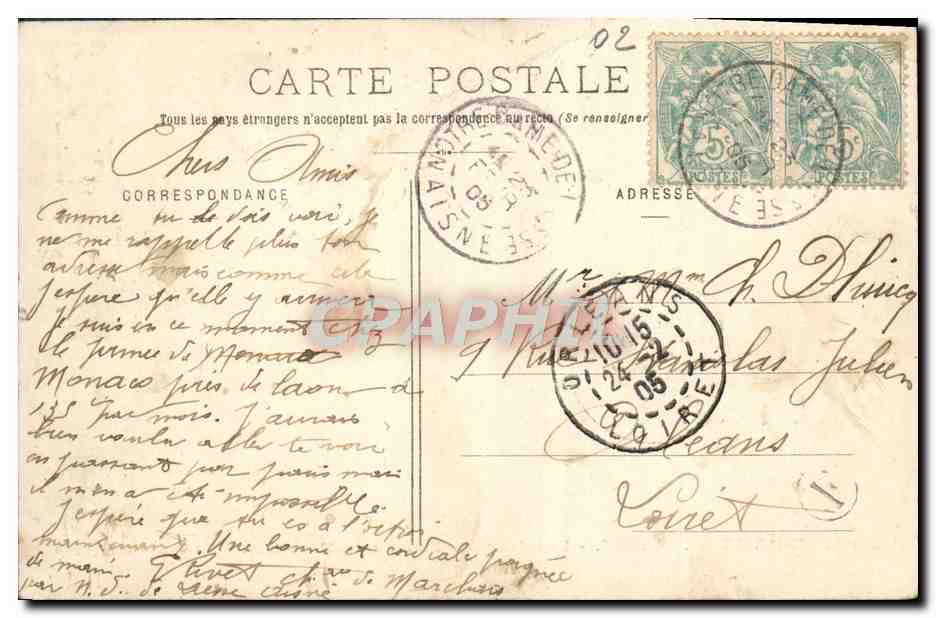 02
CARTE POSTALE
Tous les pays étrangers n'acceptent pas la correspondance au recto (Se renseigner
CORRESPONDANCE
ADRESSE
5c 5c
POSTES POSTES
NOTRE-DAME-DE-LIESSE
AISNE
ORLEANS
10 15
24 -2
05
LOIRET
CPAPHIL
Chers Amis
Comme tu dois voir, je
ne me rappelle plus ton
adresse mais comme cela
j'espère qu'elle y arrivera
je suis en ce moment chez
le prince de Monaco
Monaco près de Laon à
135 par mois. J'aurais
bien voulu aller te voir
en passant par Paris mais
il m'en a été impossible
j'espère que tu es à l'octroi
maintenant. Une bonne et cordiale poignée
de main. G Rivet chau de Marchais
par N. D. de Liesse Aisne
Mr Mme Ch. Dhuicq
9 Rue Stanislas Julien
Orléans
Loiret